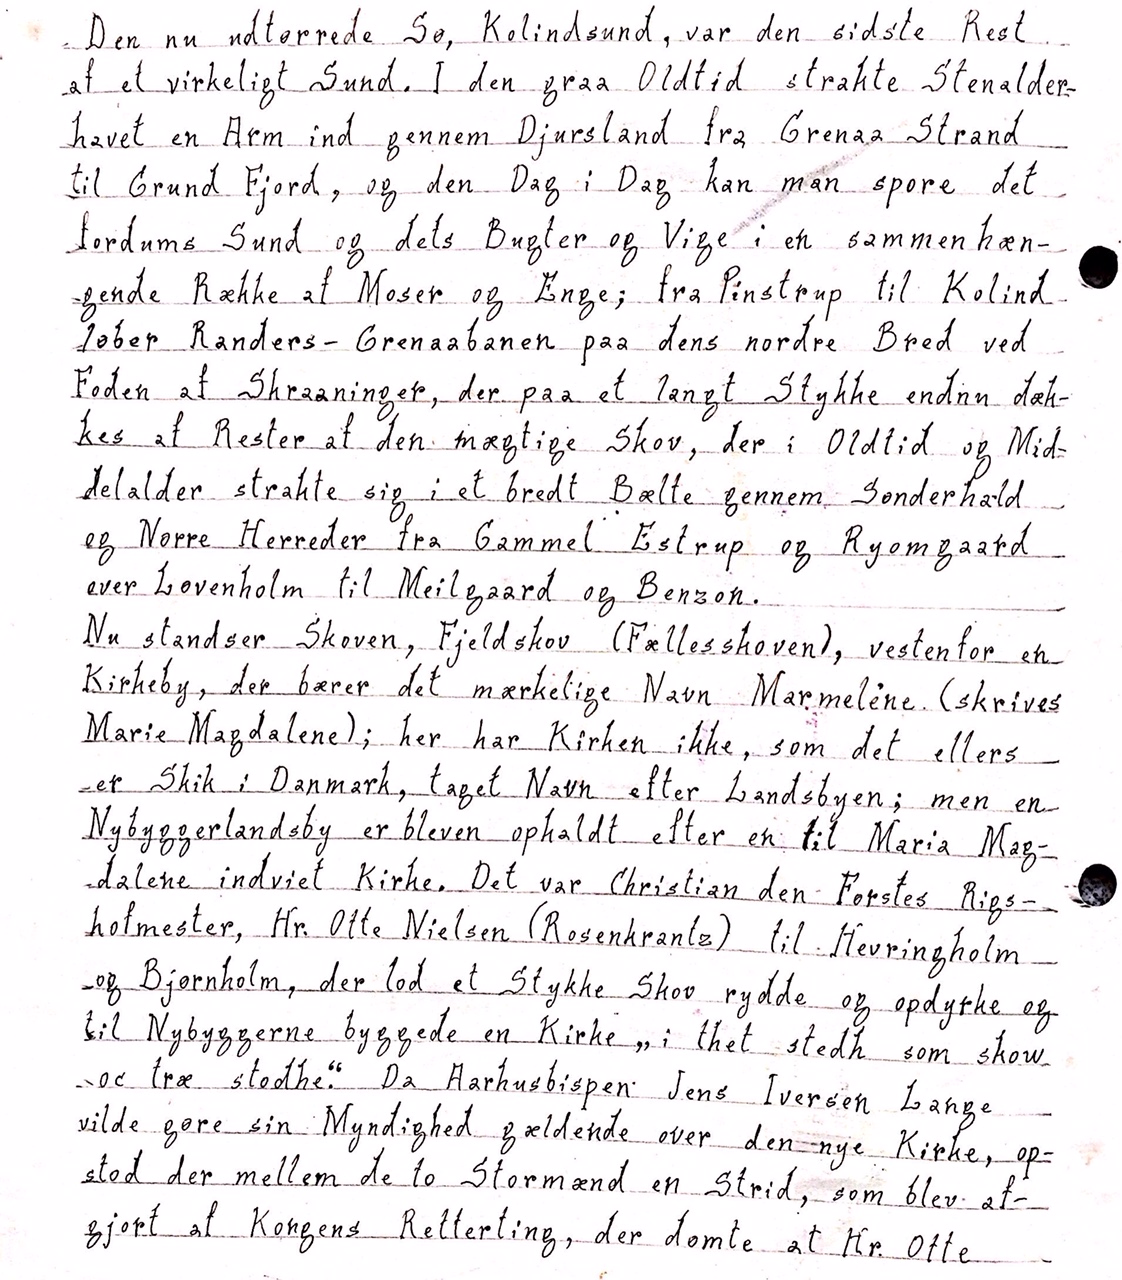 Den nu udtørrede Sø, Kolindsund, var den sidste Rest
af et virkeligt Sund. I den graa Oldtid strakte Stenalder-
havet en Arm ind gennem Djursland fra Grenaa Strand
til Grund Fjord, og den Dag i Dag kan man spore det
fordums Sund og dets Bugter og Vige i en sammenhæn-
gende Række af Moser og Enge; fra Pinstrup til Kolind
løber Randers-Grenaabanen paa dens nordre Bred ved
Foden af Skraaninger, der paa et langt Stykke endnu dæk-
kes af Rester af den mægtige Skov, der i Oldtid og Mid-
delalder strakte sig i et bredt Bælte gennem Sønderhald
og Nørre Herreder fra Gammel Estrup og Ryomgaard
over Løvenholm til Meilgaard og Benzon.
Nu standser Skoven, Fjeldskov (Fællesskoven), vestenfor en
Kirkeby, der bærer det mærkelige Navn Marmeléne (skrives
Marie Magdalene); her har Kirken ikke, som det ellers
er Skik i Danmark, taget Navn efter Landsbyen; men en
Nybyggerlandsby er bleven opkaldt efter en til Maria Mag-
dalene indviet Kirke. Det var Christian den Førstes Rigs-
hofmester, Hr. Otte Nielsen (Rosenkrantz) til Hevringholm
og Bjørnholm, der lod et Stykke Skov rydde og opdyrke og
til Nybyggerne byggede en Kirke „i thet stedh som skow
oc træ stodhe“. Da Aarhusbispen Jens Iversen Lange
vilde gøre sin Myndighed gældende over den nye Kirke, op-
stod der mellem de to Stormænd en Strid, som blev af-
gjort af Kongens Retterting, der dømte at Hr. Otte